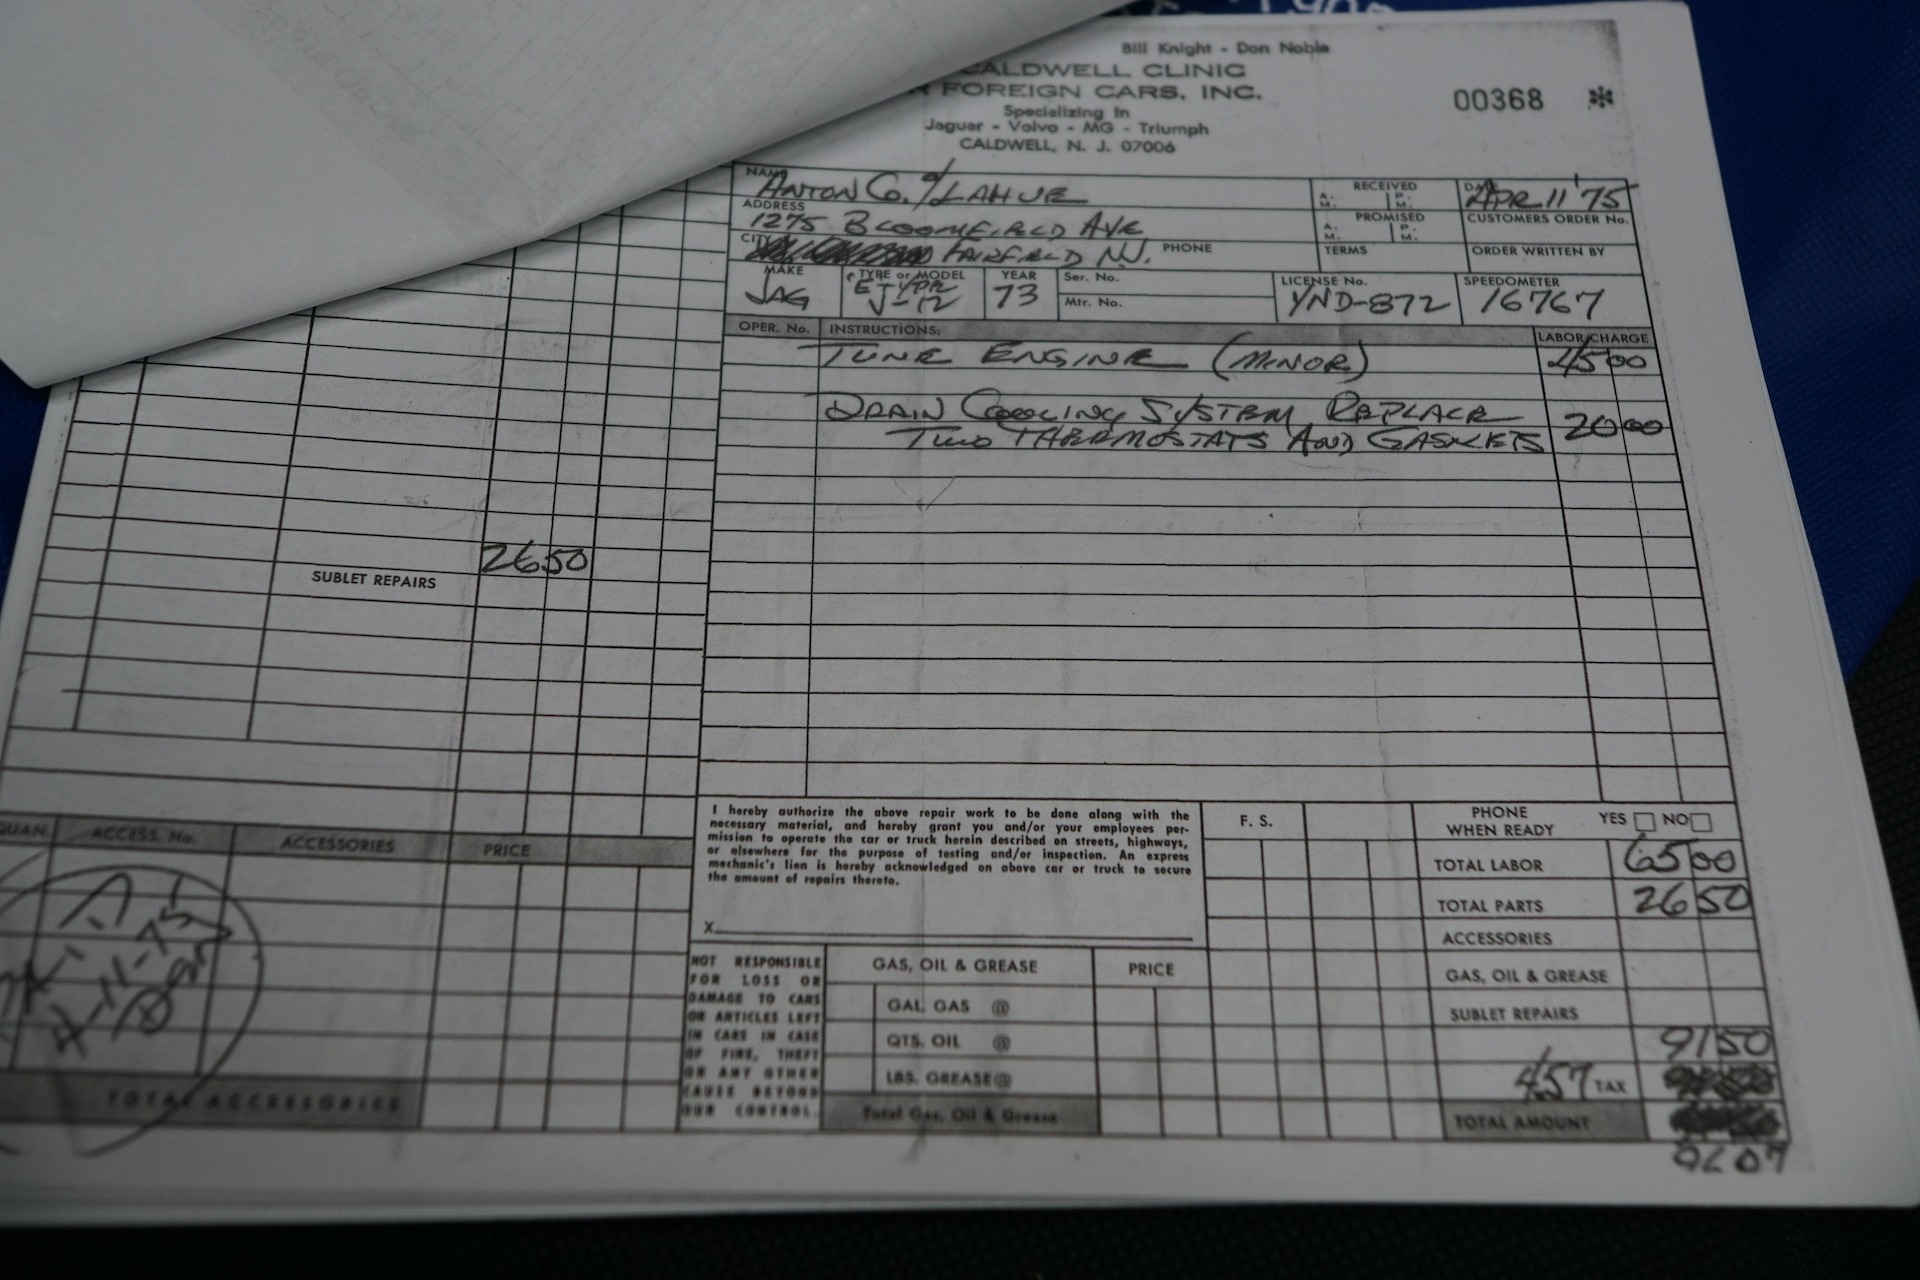 Bill Knight - Don Noble
CALDWELL CLINIC
R FOREIGN CARS, INC.
00368 *
Specializing In
Jaguar - Volvo - MG - Triumph
CALDWELL, N. J. 07006
NAME ANTON CO. % LAHUE
RECEIVED A. M. P. M.
DATE APR 11 '75
ADDRESS 1275 BLOOMFIELD AVE
PROMISED A. M. P. M.
CUSTOMERS ORDER No.
CITY FAIRFIELD NJ. PHONE
TERMS
ORDER WRITTEN BY
MAKE JAG
TYPE or MODEL E TYPE V-12
YEAR 73
Ser. No.
Mtr. No.
LICENSE No. YND-872
SPEEDOMETER 16767
OPER. No. INSTRUCTIONS: LABOR CHARGE
TUNE ENGINE (MINOR) 45 00
DRAIN COOLING SYSTEM REPLACE
TWO THERMOSTATS AND GASKETS 20 00
26 50
SUBLET REPAIRS
QUAN. ACCESS. No. ACCESSORIES PRICE
4-11-75
TOTAL ACCESSORIES
I hereby authorize the above repair work to be done along with the
necessary material, and hereby grant you and/or your employees per-
mission to operate the car or truck herein described on streets, highways,
or elsewhere for the purpose of testing and/or inspection. An express
mechanic's lien is hereby acknowledged on above car or truck to secure
the amount of repairs thereto.
X
NOT RESPONSIBLE
FOR LOSS OR
DAMAGE TO CARS
OR ARTICLES LEFT
IN CARS IN CASE
OF FIRE, THEFT
OR ANY OTHER
CAUSE BEYOND
OUR CONTROL.
GAS, OIL & GREASE PRICE
GAL. GAS @
QTS. OIL @
LBS. GREASE @
Total Gas, Oil & Grease
F. S.
PHONE WHEN READY YES NO
TOTAL LABOR 65 00
TOTAL PARTS 26 50
ACCESSORIES
GAS, OIL & GREASE
SUBLET REPAIRS
91 50
4.57 TAX
TOTAL AMOUNT
96 07